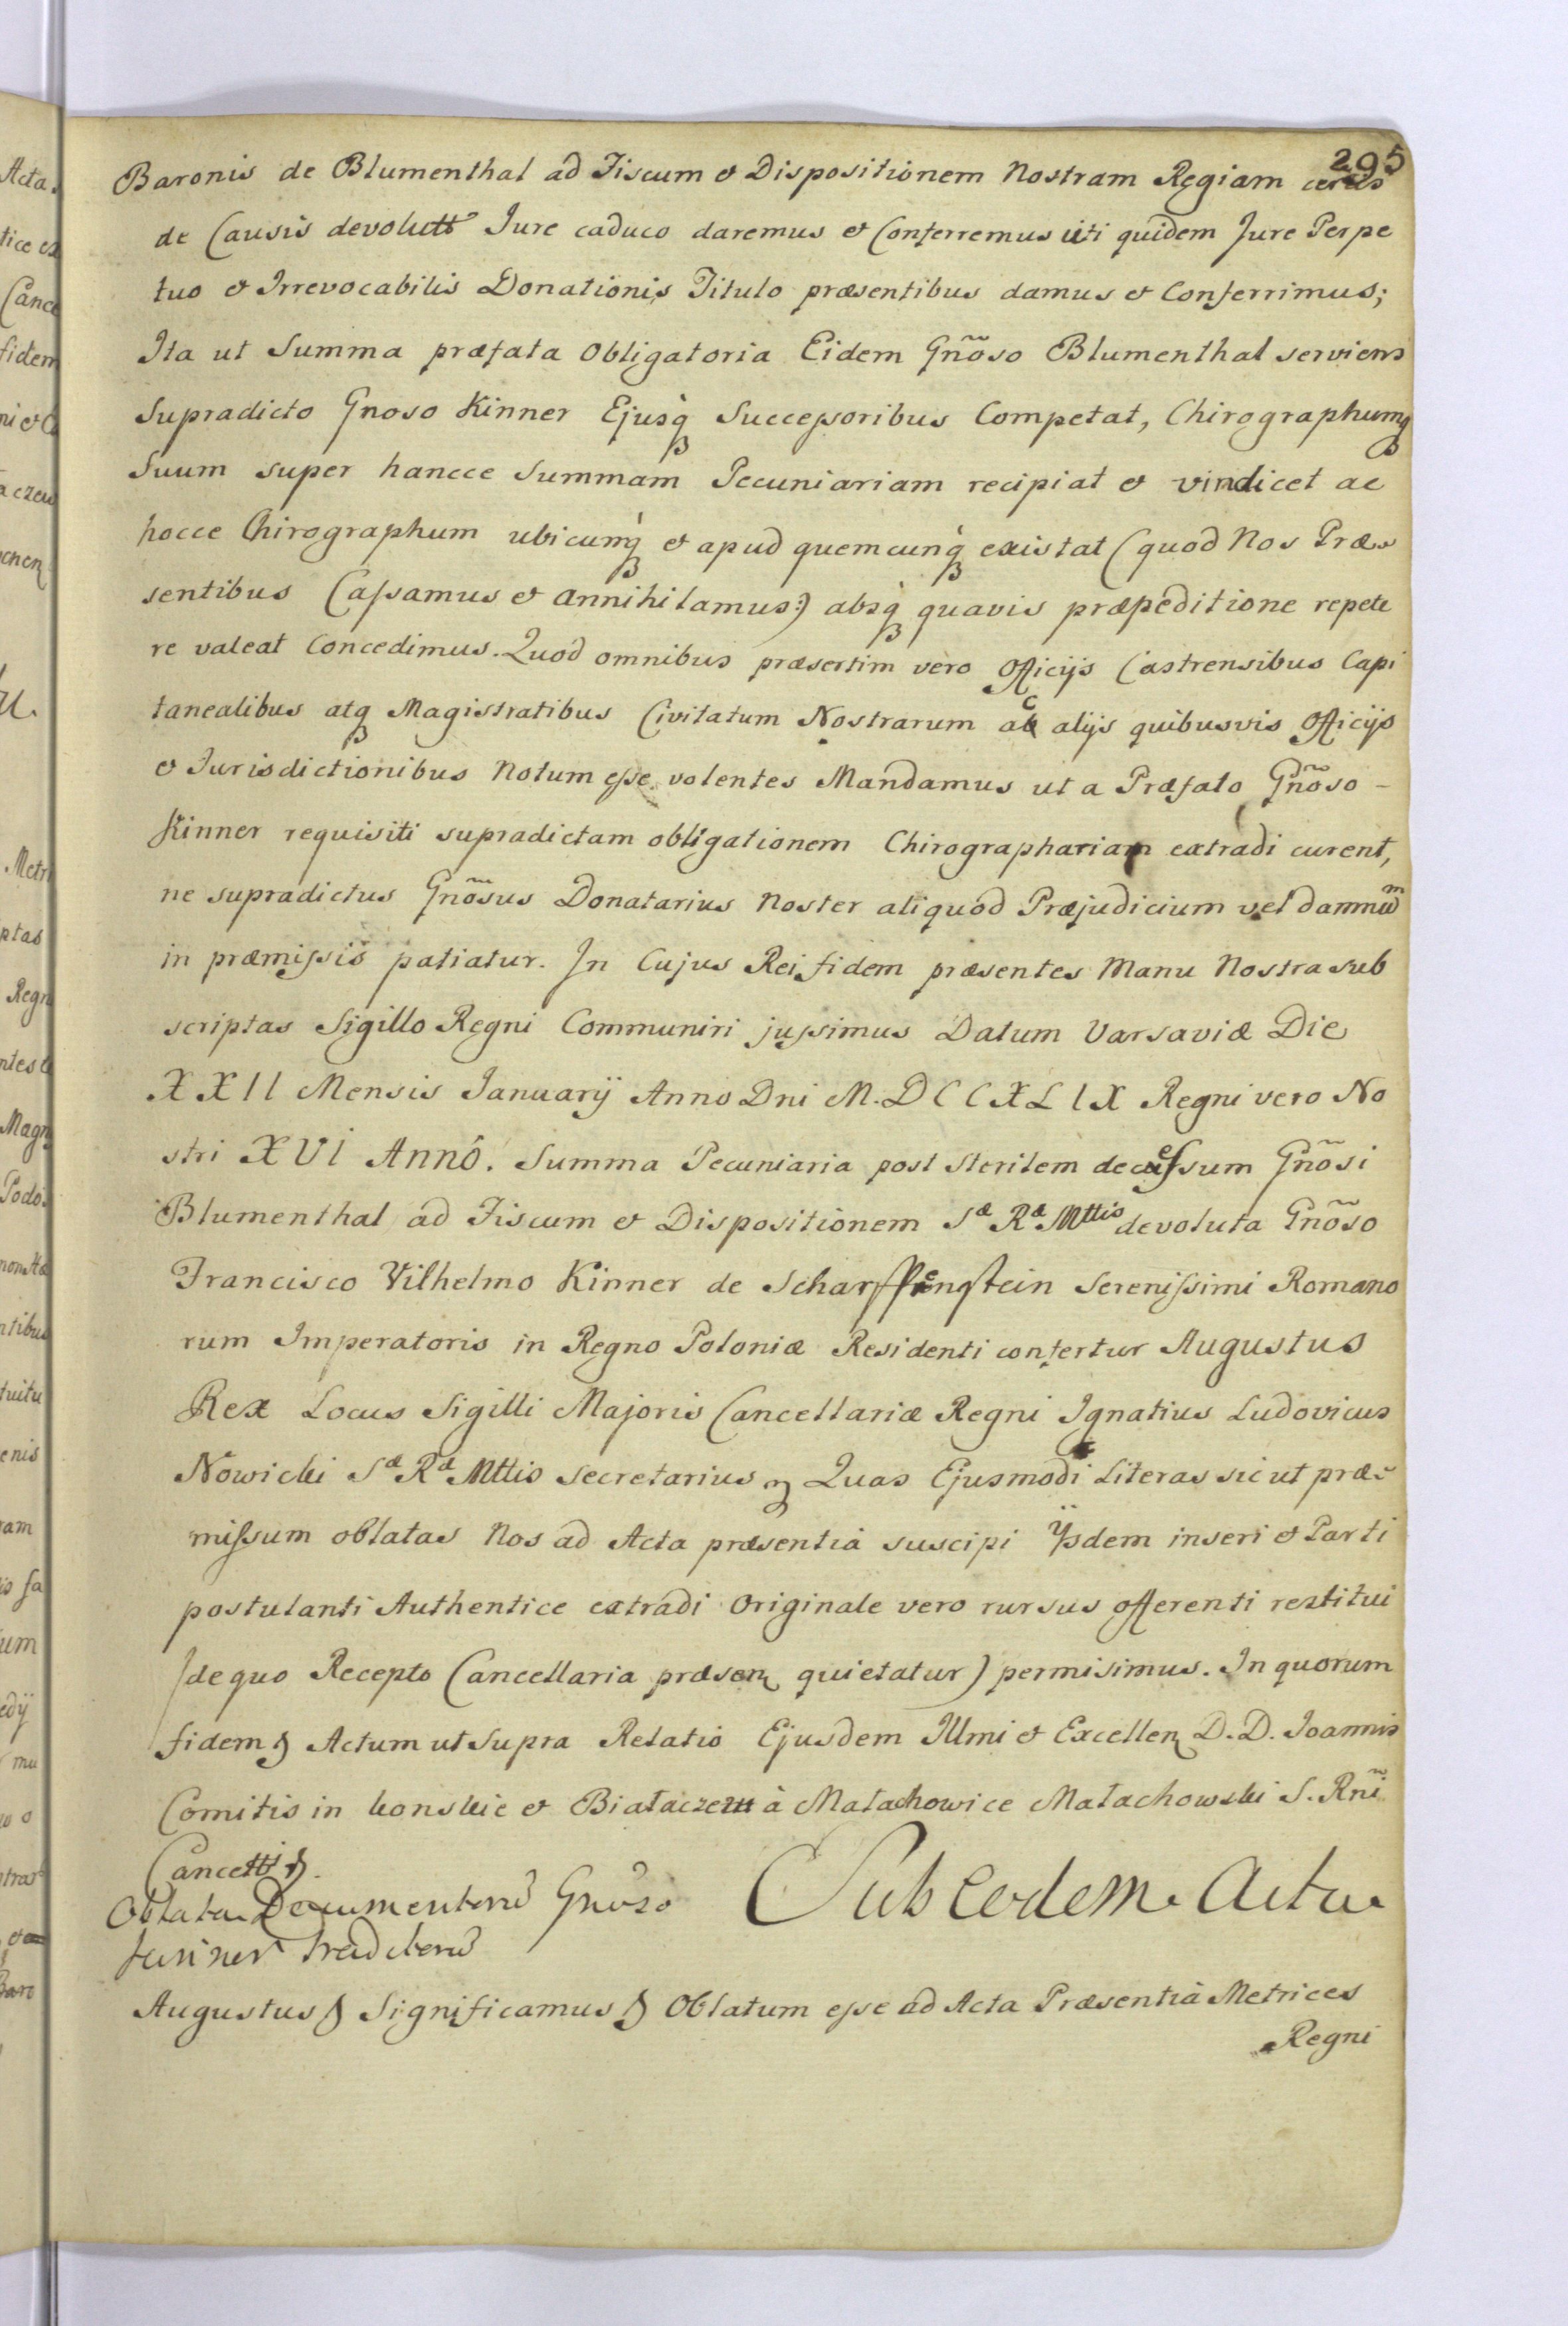 295
Baronis de Blumenthal ad Fiscum & Dispositionem Nostram Regiam certis
de Causis devolutt Jure caduco daremus & Conferremus uti quidem Jure Perpe
tuo & Irrevocabilis Donationis Titulo præsentibus damus & Conferrimus;
Ita ut Summa præfata Obligatoria Eidem Gnõso Blumenthal serviens
Supradicto Gnoso Kinner Ejusq̀ Successoribus Competat, Chirographumq
Suum super hancce Summam Pecuniariam recipiat & vindicet ac
hocce Chirographum ubicumq̀ & apud quemcunq̀ existat (quod Nos Præ
sentibus Cassamus & annihilamus:) absq̀ quavis præpeditione repete
re valeat Concedimus. Quod omnibus præsertim vero Officijs Castrensibus Capi
tanealibus atq Magistratibus Civitatum Nostrarum ac alijs quibusvis Officijs
& Jurisdictionibus Notum esse volentes Mandamus ut a Præfato Gnõso -
Kinner requisiti supradictam obligationem Chirographariam extradi curent,
ne supradictus Gnõsus Donatarius Noster aliquod Præjudicium vel damnum
in præmissis patiatur. In Cujus Rei fidem præsentes Manu Nostra sub
scriptas Sigillo Regni Communiri jussimus Datum Varsaviæ Die
XXII Mensis Januarij Anno Dni M.DCCXLIX Regni vero No
stri XVI Annô. Summa Pecuniaria post Sterilem decessum Gnõsi
Blumenthal ad Fiscum & Dispositionem Sæ Ræ Mttis devoluta Gnõso
Francisco Vilhelmo Kinner de Scharffenstein Serenissimi Romano
rum Imperatoris in Regno Poloniæ Residenti confertur Augustus
Rex Locus Sigilli Majoris Cancellariæ Regni Ignatius Ludovicus
Nowicki Sæ Ræ Mttis Secretarius Quas Ejusmodi Literas sic ut præ
missum oblatas Nos ad Acta præsentia suscipi Ijsdem inseri & Parti
postulanti Authentice extradi Originale vero rursus offerenti restitui
(de quo Recepto Cancellaria præsen quietatur) permisimus. In quorum
fidem Actum ut Supra Relatio Ejusdem Illmi & Excellen D.D. Joannis
Comitis in Konskie & Białaczew à Małachowice Małachowski S. Rnĩ
Cancetti
Sub Eodem Actu
Oblata Documentorũ Gnõso
Kinner
Augustus Significamus Oblatum esse ad Acta Præsentia Metrices
Regni